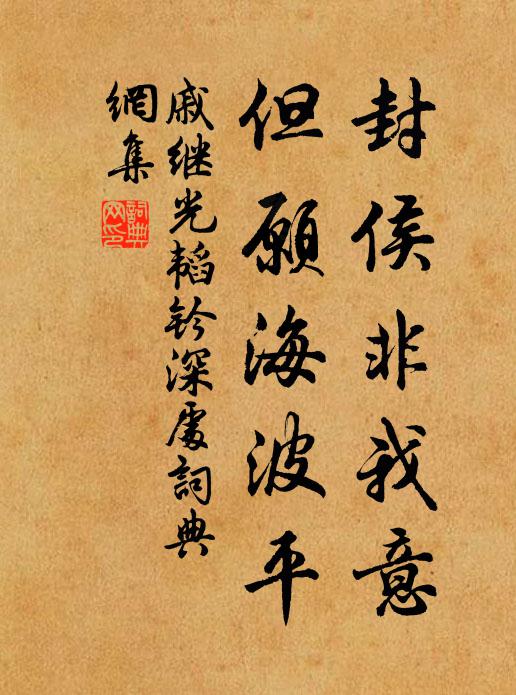 封侯非我意
但願海波平
戚继光韬鈐深處詞典
網集
詞典网印